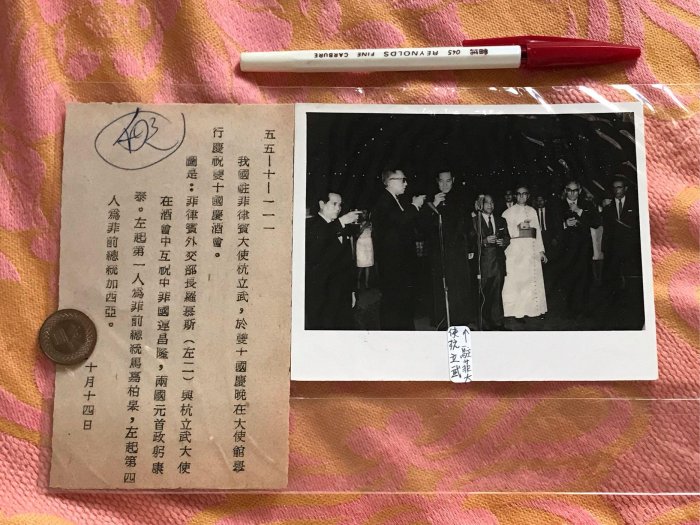 REYNOLDS FINE CARBURE 045
五五—十—一一一
我國駐菲律賓大使杭立武，於雙十國慶晚在大使館舉
行慶祝雙十國慶酒會。
圖是：菲律賓外交部長羅慕斯（左二）與杭立武大使
在酒會中互祝中菲國運昌隆，兩國元首政躬康
泰。左起第一人為菲前總統馬嘉柏皋，左起第四
人為菲前總統加西亞。
十月十四日
↑駐菲大
使杭立武